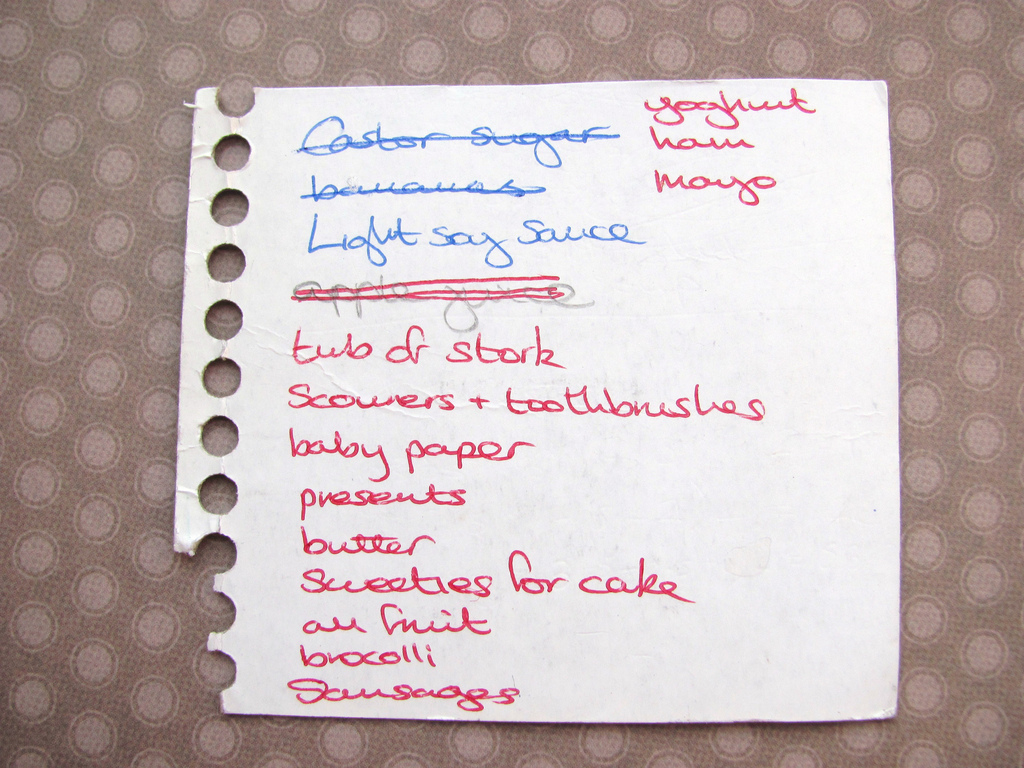 Castor sugar
bananas
Light soy sauce
apple juice
tub of stork
Scowers + toothbrushes
baby paper
presents
butter
Sweeties for cake
all fruit
brocolli
Sausages
yoghurt
ham
mayo